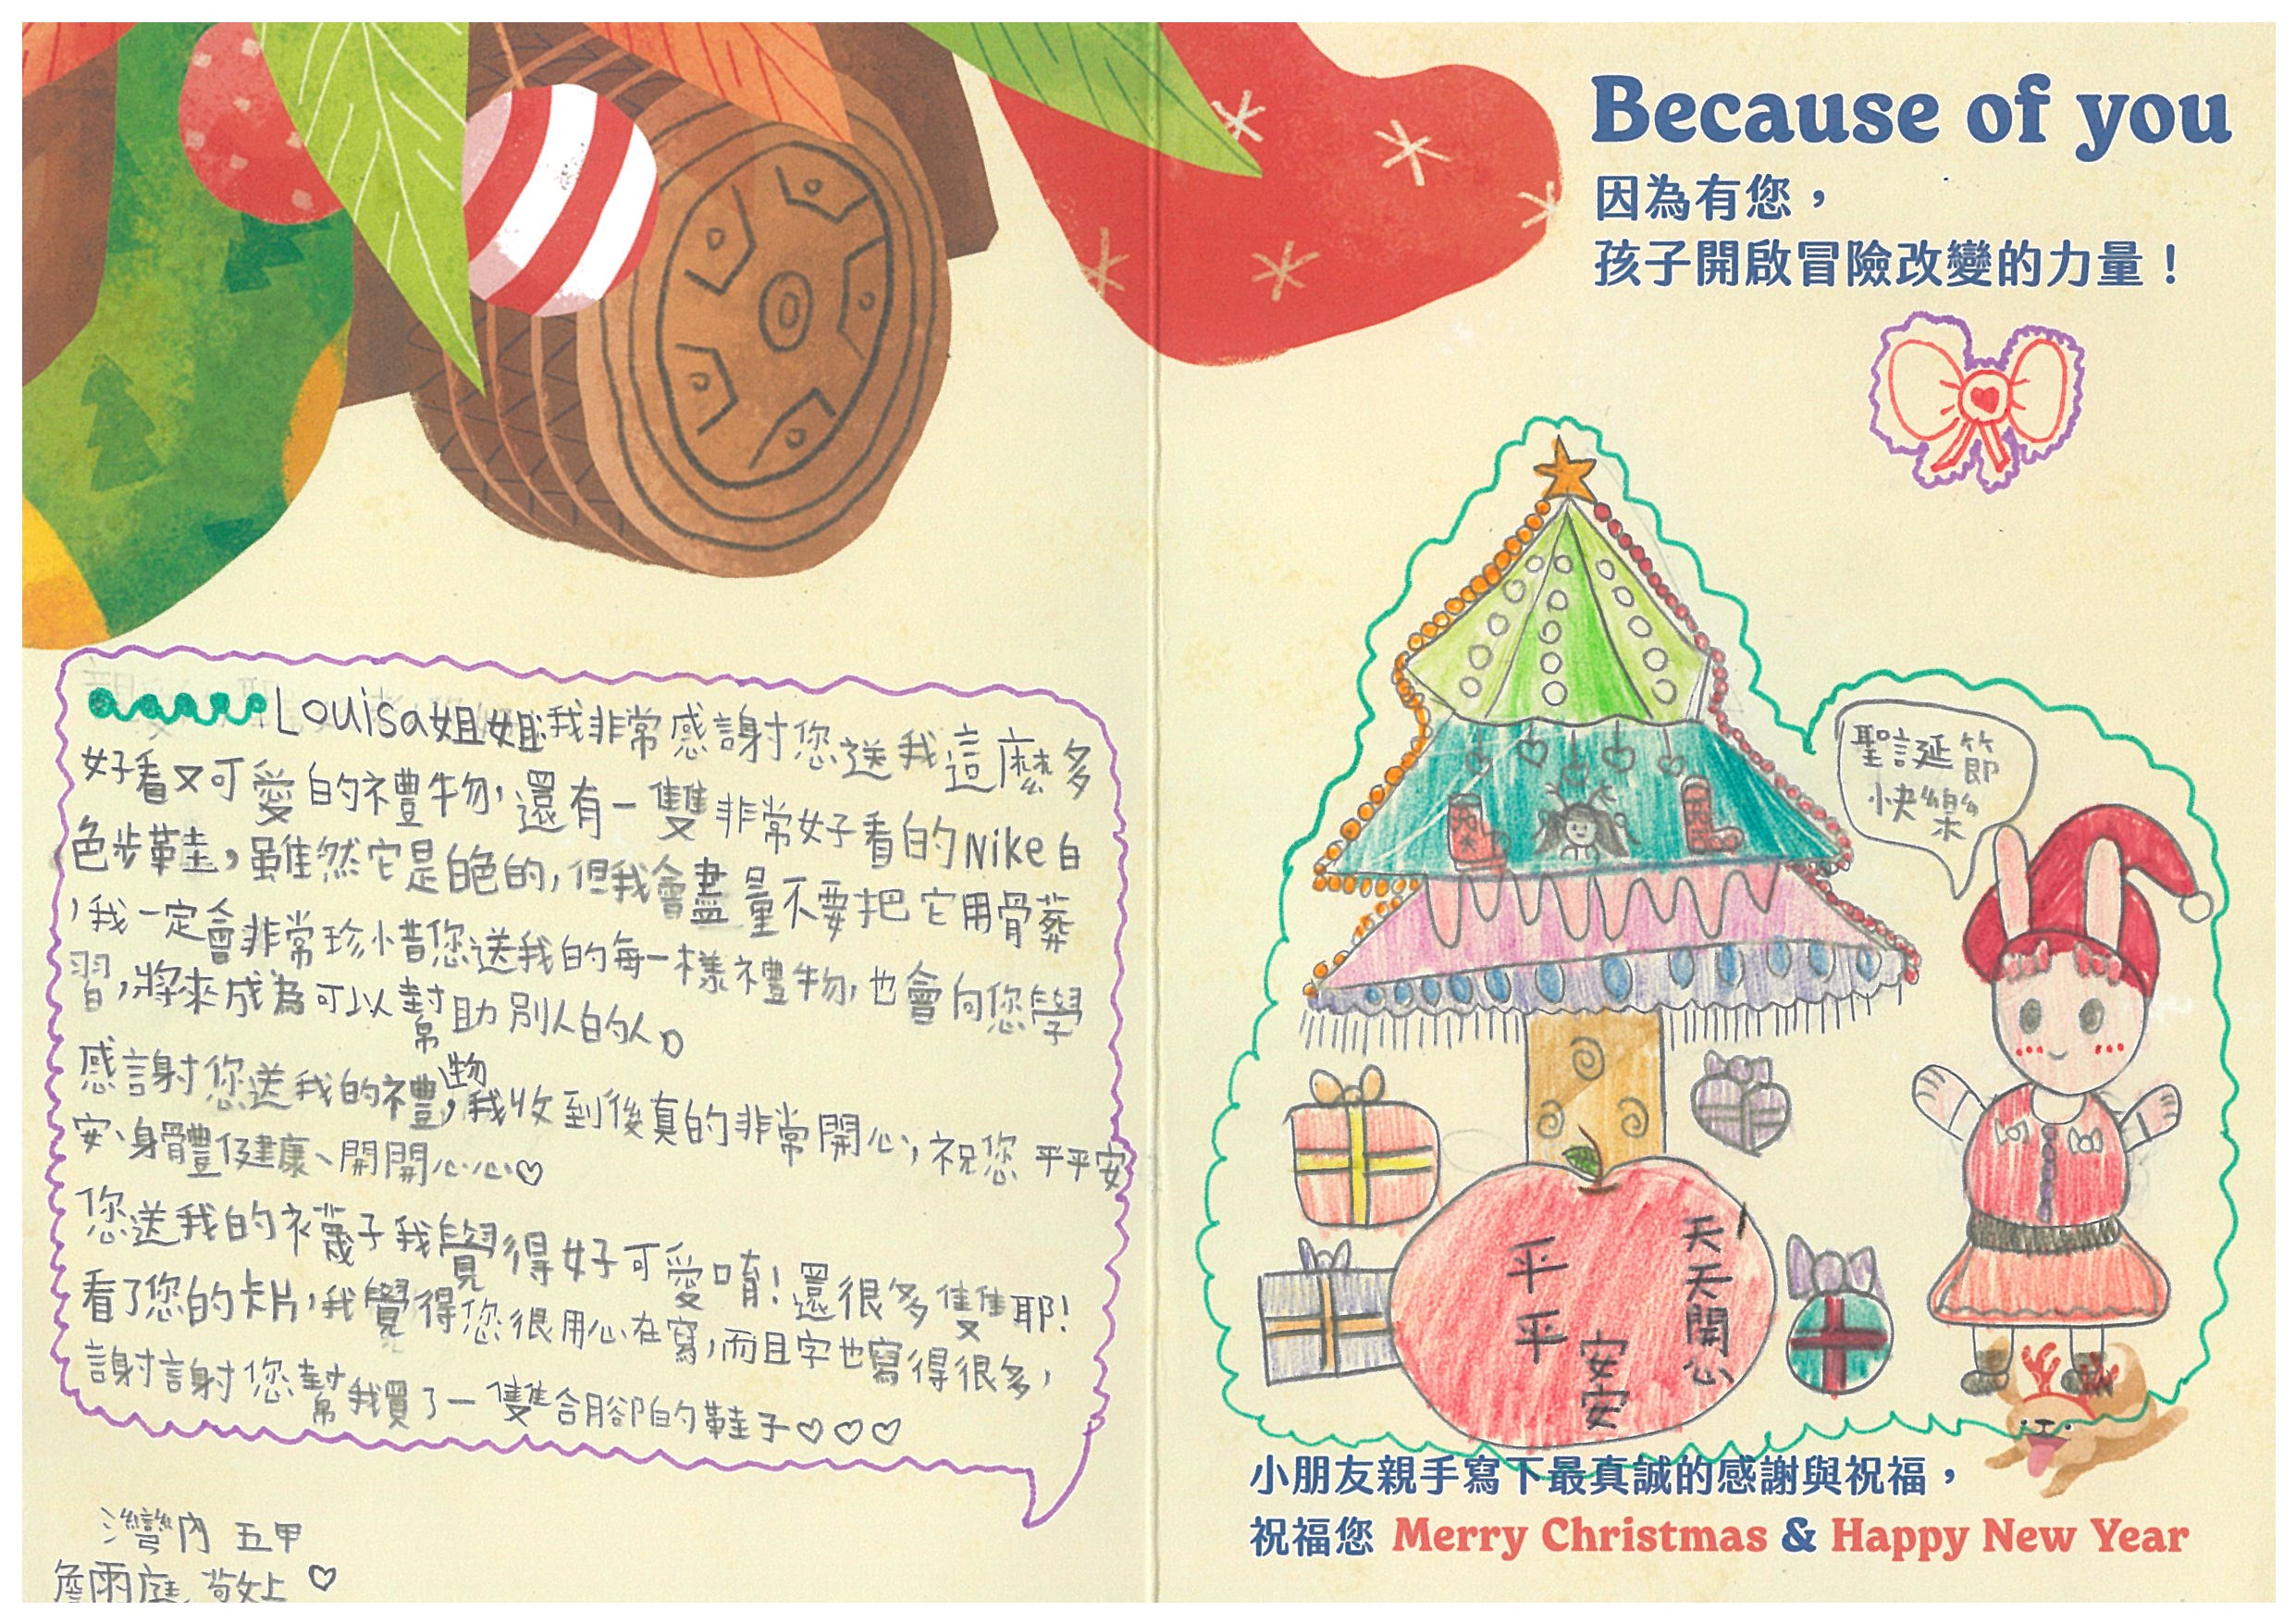 Because of you
因為有您，
孩子開啟冒險改變的力量！
Louisa姐姐我非常感謝您送我這麼多
好看又可愛的禮物，還有一雙非常好看的Nike白
色步鞋，雖然它是白色的，但我會盡量不要把它用骨葬
，我一定會非常珍惜您送我的每一樣禮物，也會向您學
習，將來成為可以幫助別人的人。
感謝您送我的禮物，我收到後真的非常開心，祝您 平平安
安、身體健康、開開心心♡
您送我的襪子我覺得好可愛唷！還很多雙耶！
看了您的卡片，我覺得您很用心在寫，而且字也寫得很多，
謝謝您幫我買了一雙合腳的鞋子♡♡♡
灣內 五甲
詹雨庭 敬上 ♡
聖誕節
快樂
平平安安
天天開心
小朋友親手寫下最真誠的感謝與祝福，
祝福您 Merry Christmas & Happy New Year